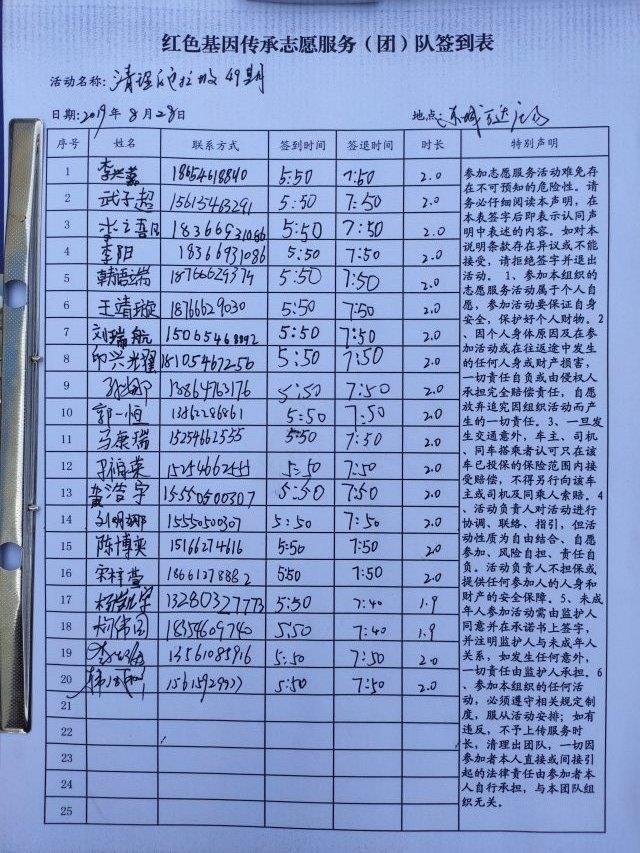 红色基因传承志愿服务（团）队签到表
活动名称：清理 垃圾 49期
日期：2019年 8月 28日 地点：东城万达广场
序号 姓名 联系方式 签到时间 签退时间 时长 特别声明
1 李兴嘉 18654618840 5:50 7:50 2.0
2 武子超 15615463291 5:50 7:50 2.0
3 18366931086 5:50 7:50 2.0
4 李阳 18366931086 5:50 7:50 2.0
5 韩语端 18766629374 5:50 7:50 2.0
6 王靖璇 18766629030 5:50 7:50 2.0
7 刘瑞航 15065468892 5:50 7:50 2.0
8 印兴光耀 18105467256 5:50 7:50 2.0
9 13864763176 5:50 7:50 2.0
10 郭一恒 13862286861 5:50 7:50 2.0
11 马康瑞 15254662555 5:50 7:50 2.0
12 15254662555 5:50 7:50 2.0
13 黄浩宇 15550500307 5:50 7:50 2.0
14 刘明娜 1555050307 5:50 7:50 2.0
15 陈博奕 15166274616 5:50 7:50 2.0
16 宋梓萱 18661278882 5:50 7:50 2.0
17 13280327773 5:50 7:40 1.9
18 18354609740 5:50 7:40 1.9
19 13561085916 5:50 7:50 2.0
20 5:50 7:50 2.0
21
22
23
24
25
参加志愿服务活动难免存
在不可预知的危险性。请
务必仔细阅读本声明，在
本表签字后即表示认同声
明中表述的内容。如对本
说明条款存在异议或不能
接受，请拒绝签字并退出
活动。1、参加本组织的
志愿服务活动属于个人自
愿，参加活动要保证自身
安全，保护好个人财物。2
、因个人身体原因及在参
加活动或在往返途中发生
的任何人身或财产损害，
一切责任自负或由侵权人
承担完全赔偿责任，自愿
放弃追究因组织活动而产
生的一切责任。3、一旦发
生交通意外，车主、司机
、同车搭乘者认可只在该
车已投保的保险范围内接
受赔偿，不得另行向该车
主或司机及同乘人索赔。4
、活动负责人对活动进行
协调、联络、指引，但活
动性质为自由结合、自愿
参加、风险自担、责任自
负。活动负责人不担保或
提供任何参加人的人身和
财产的安全保障。5、未成
年人参加活动需由监护人
同意并在承诺书上签字，
并注明监护人与未成年人
关系，如发生任何意外，
一切责任由监护人承担。6
、参加本组织的任何活
动，必须遵守相关规定制
度，服从活动安排；如有
违反，不予上传服务时
长，清理出团队，一切因
参加者本人直接或间接引
起的法律责任由参加者本
人自行承担，与本团队组
织无关。